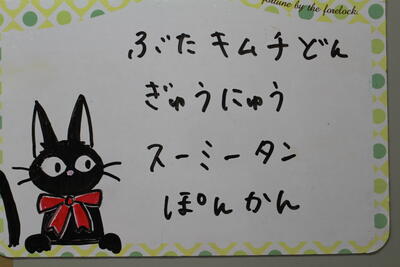 fortune by the forelock.
ぶたキムチどん
ぎゅうにゅう
スーミータン
ぽんかん